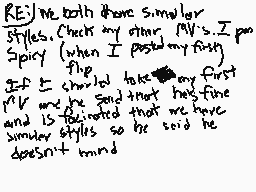 RE: we both share similar
styles. Check my other MV's. I
Spicy (when I posted my first)
flip
If I should take my first
MV and he said that he's fine
and is facinated that we have
similar styles so he said he
doesn't mind